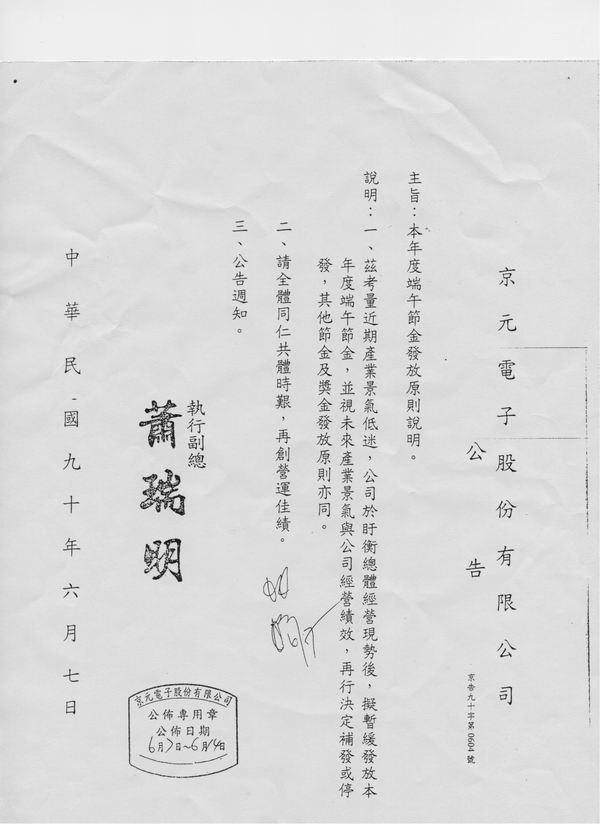 京元電子股份有限公司
公告
京告九十字第0604號
主旨：本年度端午節金發放原則說明。
說明：一、茲考量近期產業景氣低迷，公司於盱衡總體經營現勢後，擬暫緩發放本
年度端午節金，並視未來產業景氣與公司經營績效，再行決定補發或停
發，其他節金及獎金發放原則亦同。
二、請全體同仁共體時艱，再創營運佳績。
三、公告週知。
執行副總
蕭瑞明
中華民國九十年六月七日
京元電子股份有限公司
公佈專用章
公佈日期
6月7日~6月14日